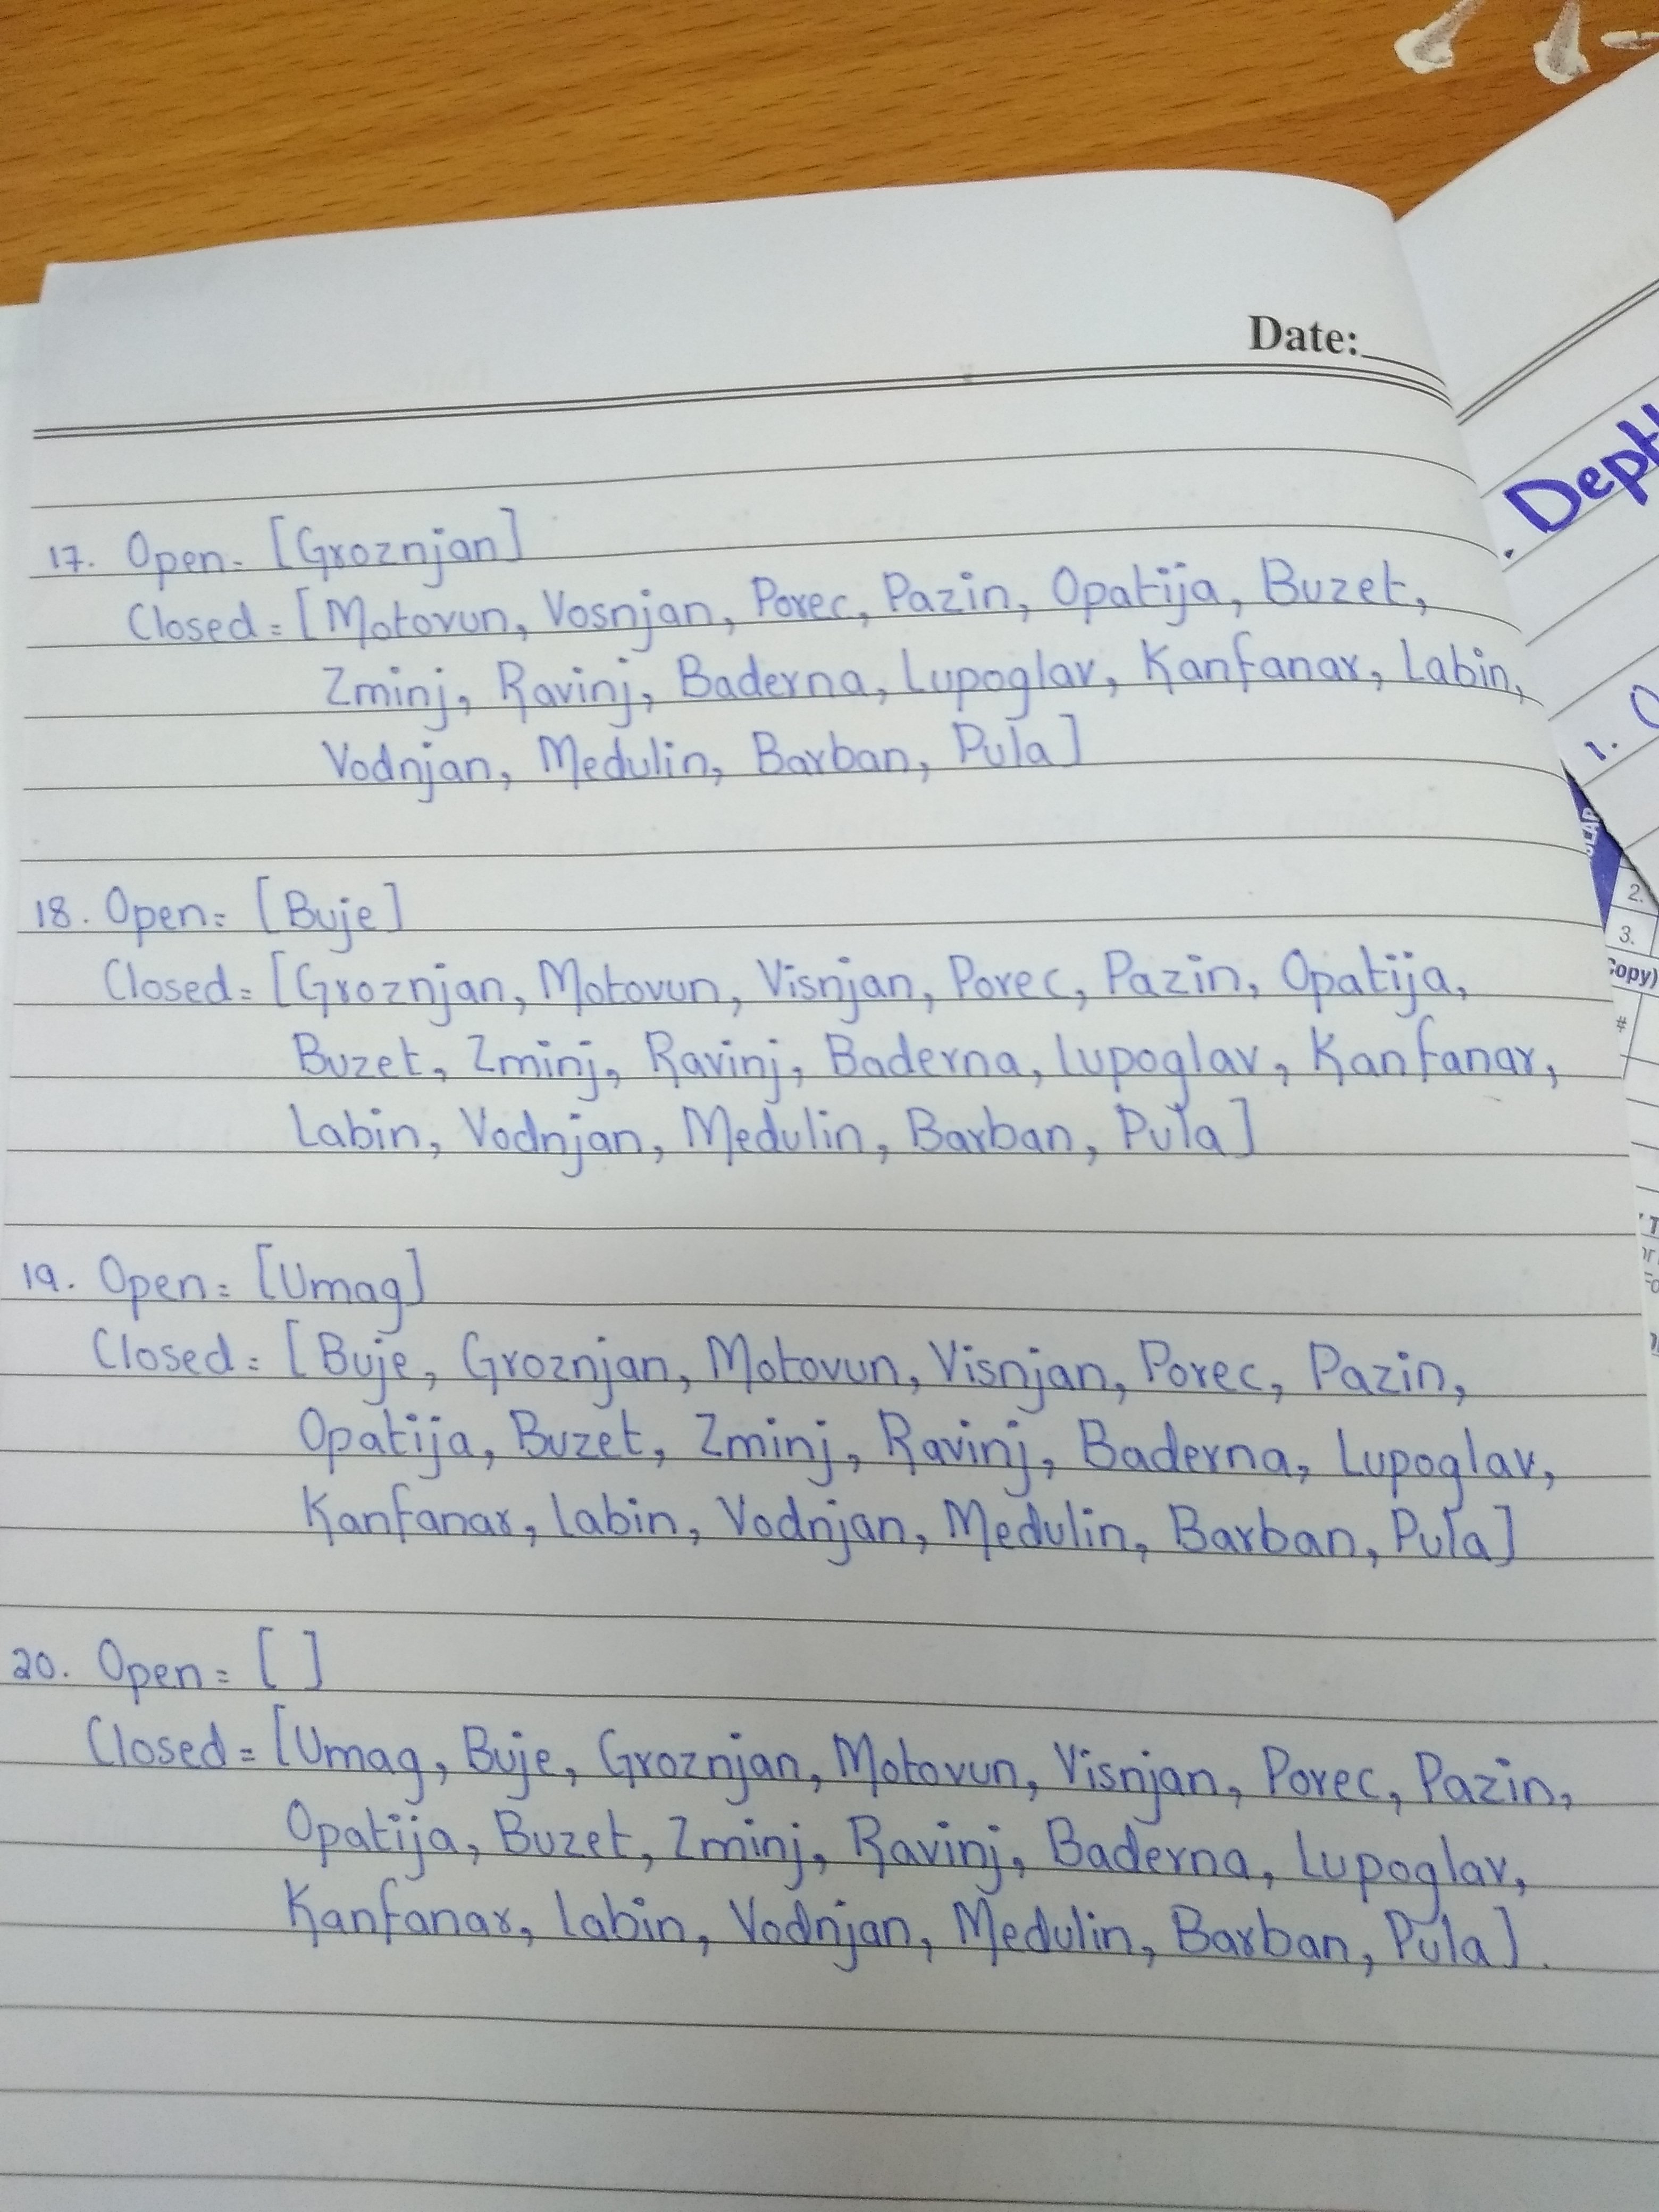 Date:
17. Open = [Groznjan]
Closed = [Motovun, Vosnjan, Porec, Pazin, Opatija, Buzet,
Zminj, Ravinj, Baderna, Lupoglav, Kanfanar, Labin,
Vodnjan, Medulin, Barban, Pula]
18. Open = [Buje]
Closed = [Groznjan, Motovun, Visnjan, Porec, Pazin, Opatija,
Buzet, Zminj, Ravinj, Baderna, Lupoglav, Kanfanar,
Labin, Vodnjan, Medulin, Barban, Pula]
19. Open = [Umag]
Closed = [Buje, Groznjan, Motovun, Visnjan, Porec, Pazin,
Opatija, Buzet, Zminj, Ravinj, Baderna, Lupoglav,
Kanfanar, Labin, Vodnjan, Medulin, Barban, Pula]
20. Open = [ ]
Closed = [Umag, Buje, Groznjan, Motovun, Visnjan, Porec, Pazin,
Opatija, Buzet, Zminj, Ravinj, Baderna, Lupoglav,
Kanfanar, Labin, Vodnjan, Medulin, Barban, Pula].
. Dept
1.
2.
3.
Copy)
#